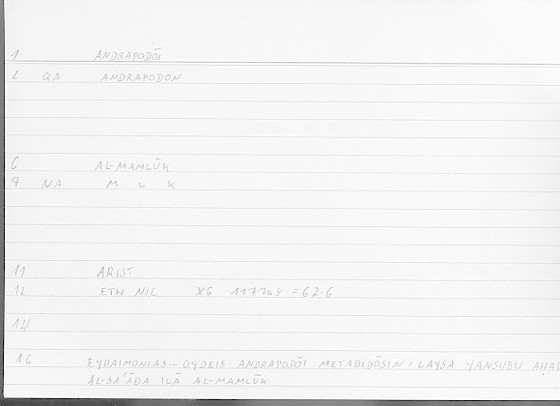 1 ANDRAPODŌI
2 QA ANDRAPODON
6 AL-MAMLŪK
7 NA M L K
11 ARIST
12 ETH NIC X6 1177a8 = 62.6
12/
16 EYDAIMONIAS - OYDEIS ANDRAPODŌI METADIDŌSIN = LAYSA YANSUBU AḤAD
AL-SAʿĀDA ILĀ AL-MAMLŪK